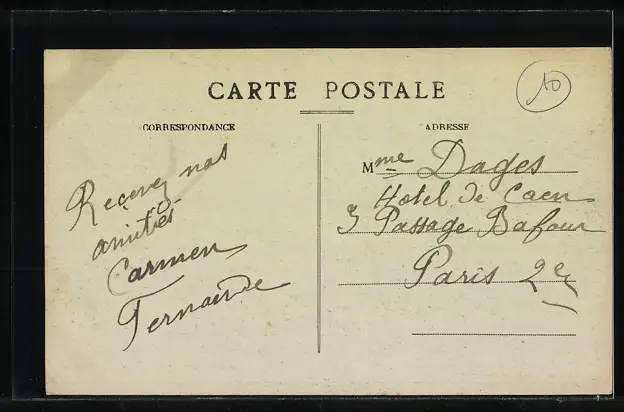 CARTE POSTALE
10
CORRESPONDANCE
ADRESSE
Recevez nos
amitiés
Carmen
Fernande
Mme Dages
Hotel de Caen
3 Passage Bafour
Paris 2e